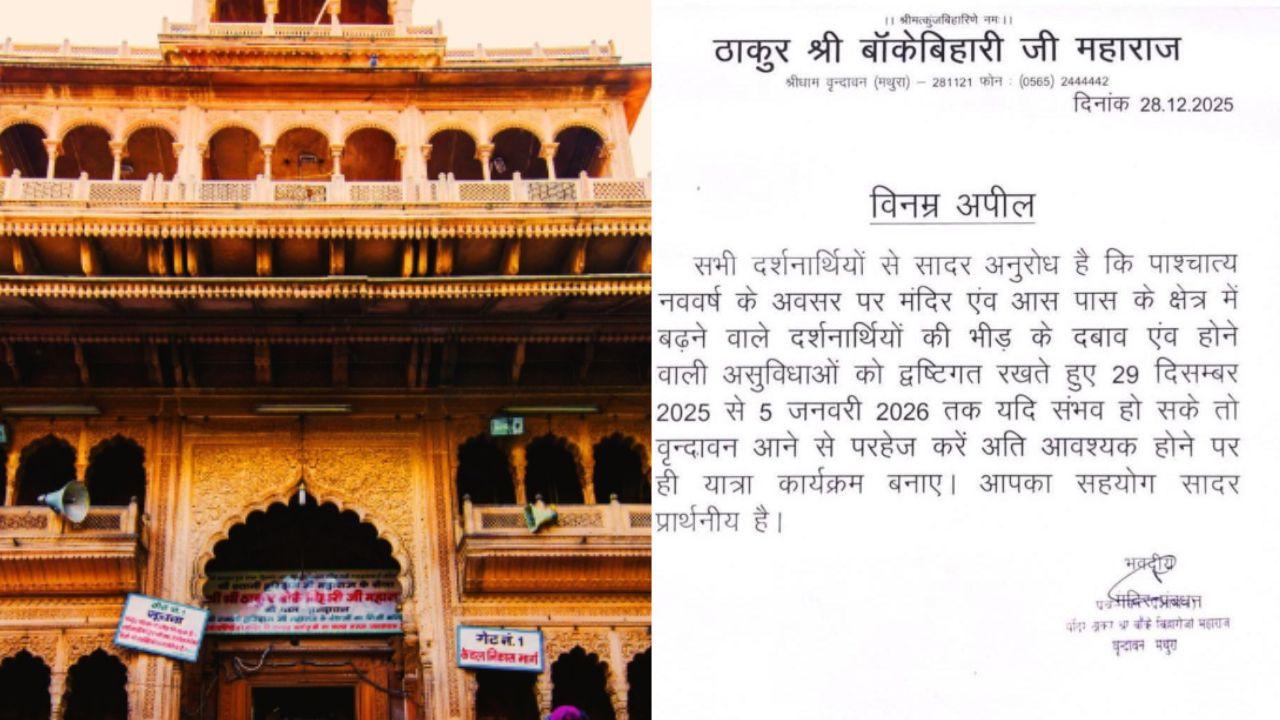 ।। श्रीमत्कुंजबिहारिणे नमः।।
ठाकुर श्री बॉकेबिहारी जी महाराज
श्रीधाम वृन्दावन (मथुरा) – 281121 फोन : (0565) 2444442
दिनांक 28.12.2025
विनम्र अपील
सभी दर्शनार्थियों से सादर अनुरोध है कि पाश्चात्य
नववर्ष के अवसर पर मंदिर एंव आस पास के क्षेत्र में
बढ़ने वाले दर्शनार्थियों की भीड़ के दबाव एंव होने
वाली असुविधाओं को द्वष्टिगत रखते हुए 29 दिसम्बर
2025 से 5 जनवरी 2026 तक यदि संभव हो सके तो
वृन्दावन आने से परहेज करें अति आवश्यक होने पर
ही यात्रा कार्यक्रम बनाए। आपका सहयोग सादर
प्रार्थनीय है।
भवदीय
मंदिर प्रबंधन
वृन्दावन मथुरा
श्री श्री ठाकुर बाँके बिहारी जी महाराज
गेट नं. 1
सूचना
गेट नं. 1
केवल निकास मार्ग